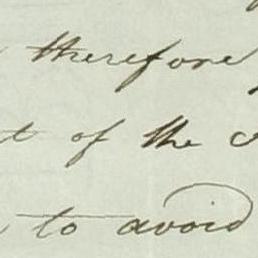 therefore
of the
to avoid